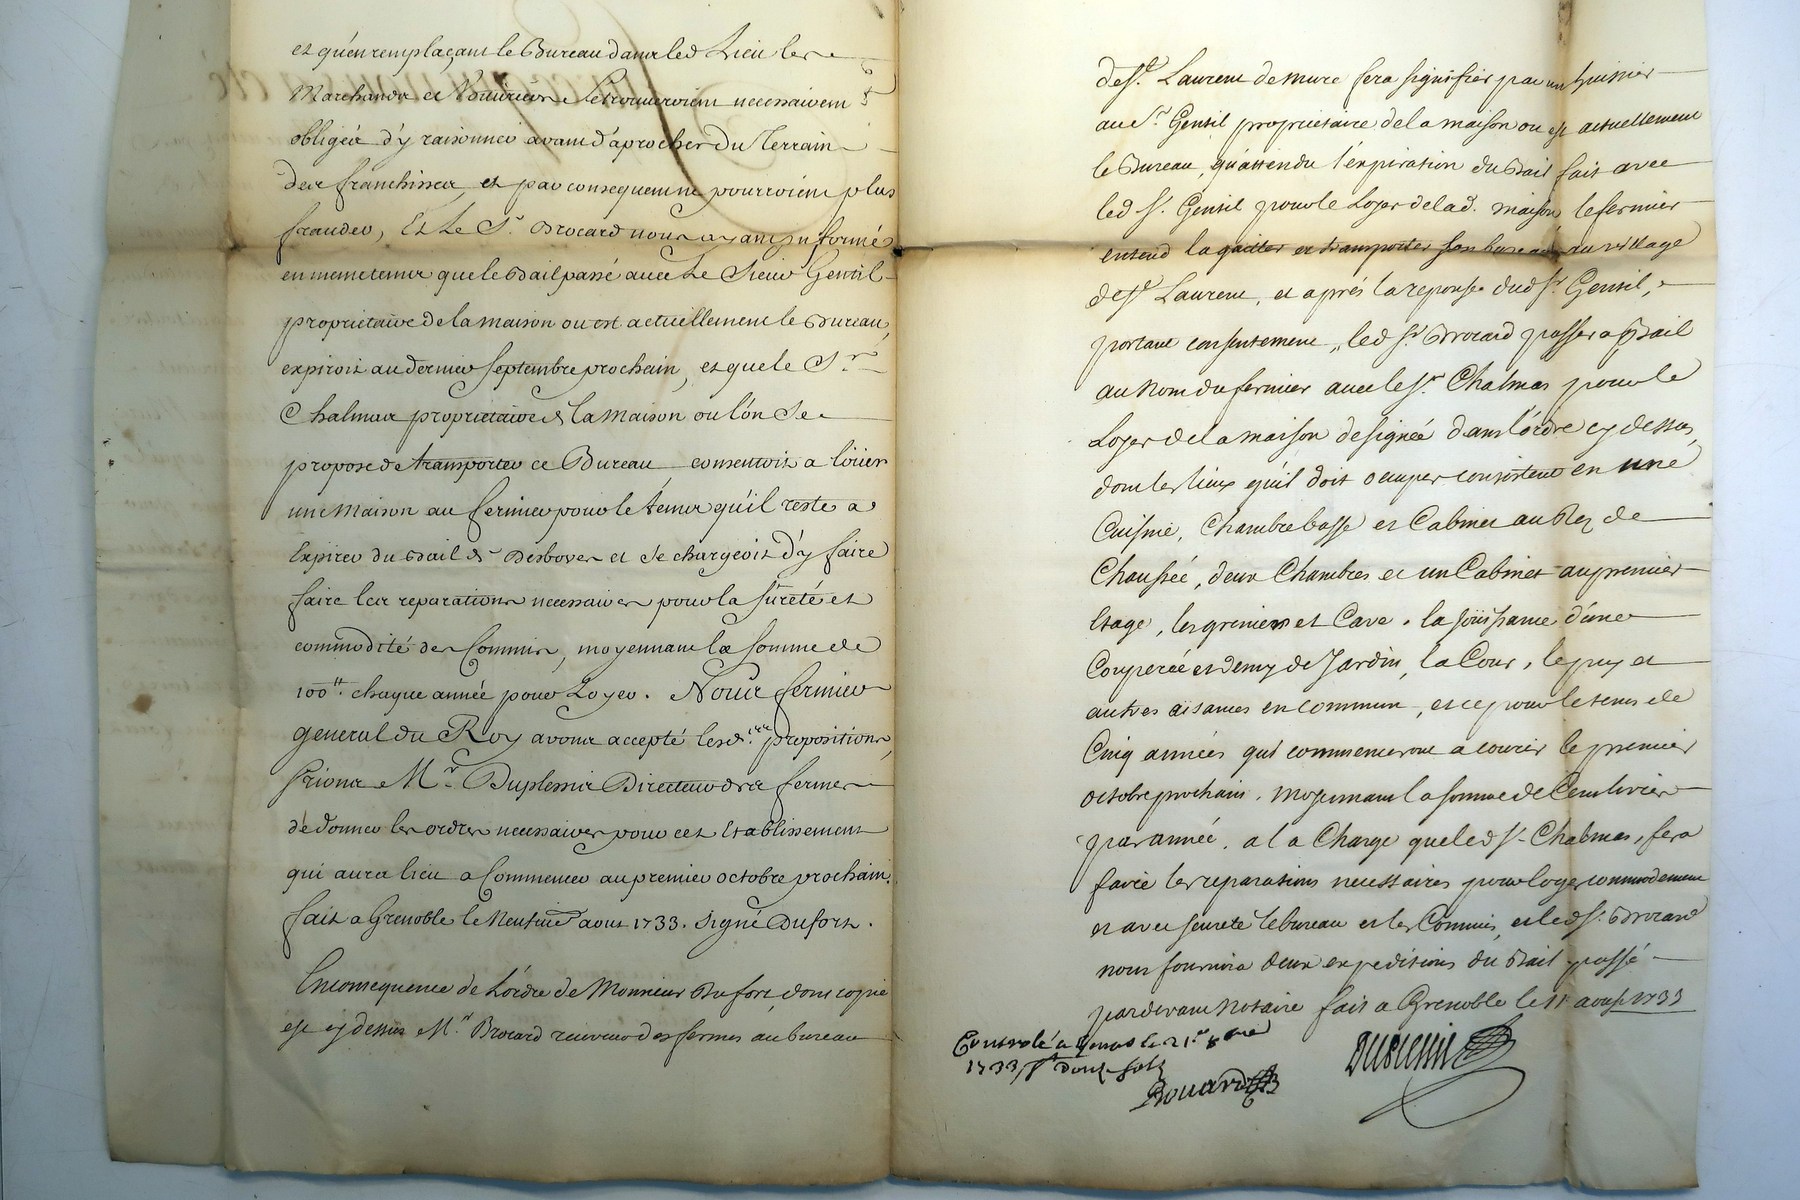 et qu'en remplaçant le Bureau dans led Lieu les
Marchands et Voituriers se trouveroient necessairem
obligés d'y raisonner avant d'aprocher du Terrain
des franchises, et par consequent ne pourroient plus
frauder, Et Le Sr. Brocard nous ayant informé
en meme tems que le Bail passé avec Le Sieur Gentil
proprietaire de la maison ou est actuellement le Bureau,
expiroit au dernier septembre prochain, et que le Sr.
Chalmas proprietaire de la Maison ou l'on se
propose de transporter ce Bureau consentoit a loüer
une Maison au fermier pour le tems qu'il reste a
Expirer du Bail de Desboves et se chargeoit d'y faire
faire les reparations necessaires pour la sureté et
commodité des Commis, moyennant la somme de
100tt. chaque année pour Loyer. Nous fermier
general du Roy avons accepté lesd. propositions,
Prions Mr. Duplessis Directeur des fermes
de donner les ordres necessaires pour cet Etablissement
qui aura lieu a Commencer au premier octobre prochain.
fait a Grenoble le Neuf aout 1733. signé Dufort.
En consequence de L'ordre de Monsieur Dufort, dont copie
est cy dessus Mr. Brocard receveur des fermes au bureau
de St. Laurent demure fera signifier par un huissier
au Sr. Gentil proprietaire de la maison ou est actuellement
le Bureau, qu'attendu l'expiration du Bail fait avec
led Sr. Gentil pour le Loyer de lad. maison le fermier
entend la quitter et transporter son bureau au village
de St. Laurent, et aprés la reponse dud Sr Gentil,
portant consentement, led Sr. Brocard passera Bail
au Nom du fermier avec le Sr. Chalmas pour le
Loyer de la maison designée dans l'ordre cy dessus,
dont les lieux qu'il doit occuper consistent en une
Cuisine, Chambre basse et Cabinet au Rez de
Chaussée, deux Chambres et un Cabinet au premier
Etage, les greniers et Cave. la joüissance d'une
Couperée et demy de Jardin, la Cour, le puy et
autres aisances en commun, et ce pour le tems de
Cinq années qui commenceront a courir le premier
octobre prochain. moyennant la somme de Cent livres
par année. a la Charge que led Sr. Chalmas, fera
faire les reparations necessaires pour loger commodement
et avec seureté le bureau et les Commis, et led Sr. Brocard
nous fournira deux expeditions du Bail passé
pardevant Notaire fait a Grenoble le 11 aoust 1733
Controlé a le 21e 8bre
1733 douze sols
Bouard Duplessis